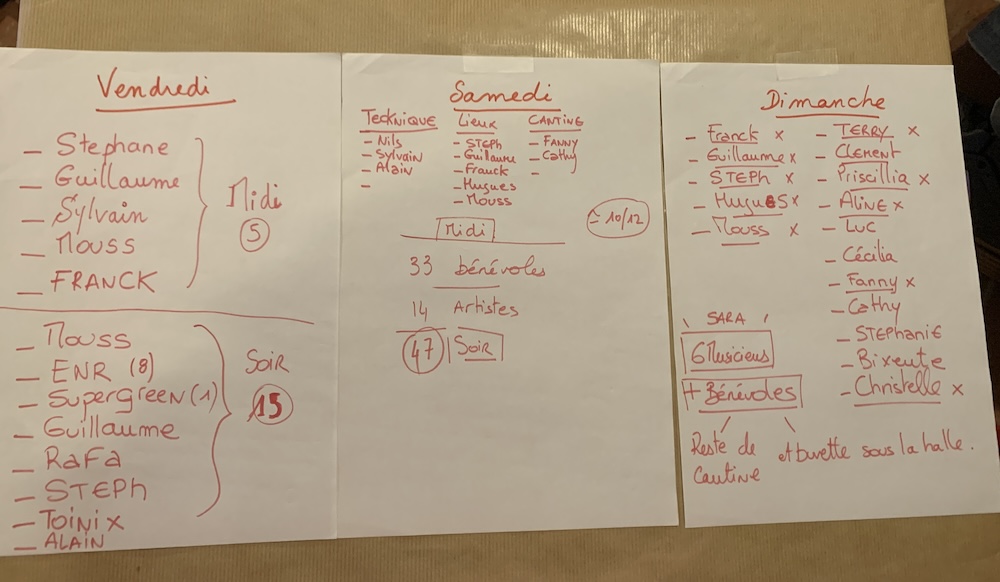 Vendredi
_ Stephane
_ Guillaume
_ Sylvain
_ Mouss
_ FRANCK
Midi
5
_ Mouss
_ ENR (8)
_ Supergreen (1)
_ Guillaume
_ RaFa
_ STEPh
_ Toinix
_ ALAIN
Soir
15
Samedi
Technique
- Nils
- Sylvain
- Alain
-
Lieux
- STEPh
- Guillaume
- Franck
- Hugues
- Mouss
CANTINE
- FANNY
- Cathy
-
= 10/12
Midi
33 bénévoles
14 Artistes
47 Soir
Dimanche
- Franck x
- Guillaume x
- STEPh x
- HugueS x
- Mouss x
- TERRY x
- CLEMENT
- Priscillia x
- ALiNE x
- Luc
- Cécilia
- Fanny x
- Cathy
- STEPhANiE
- Bixente
- Christelle x
\ SARA /
6 Musiciens
+ Bénévoles
Reste de
cantine
et buvette sous la halle.